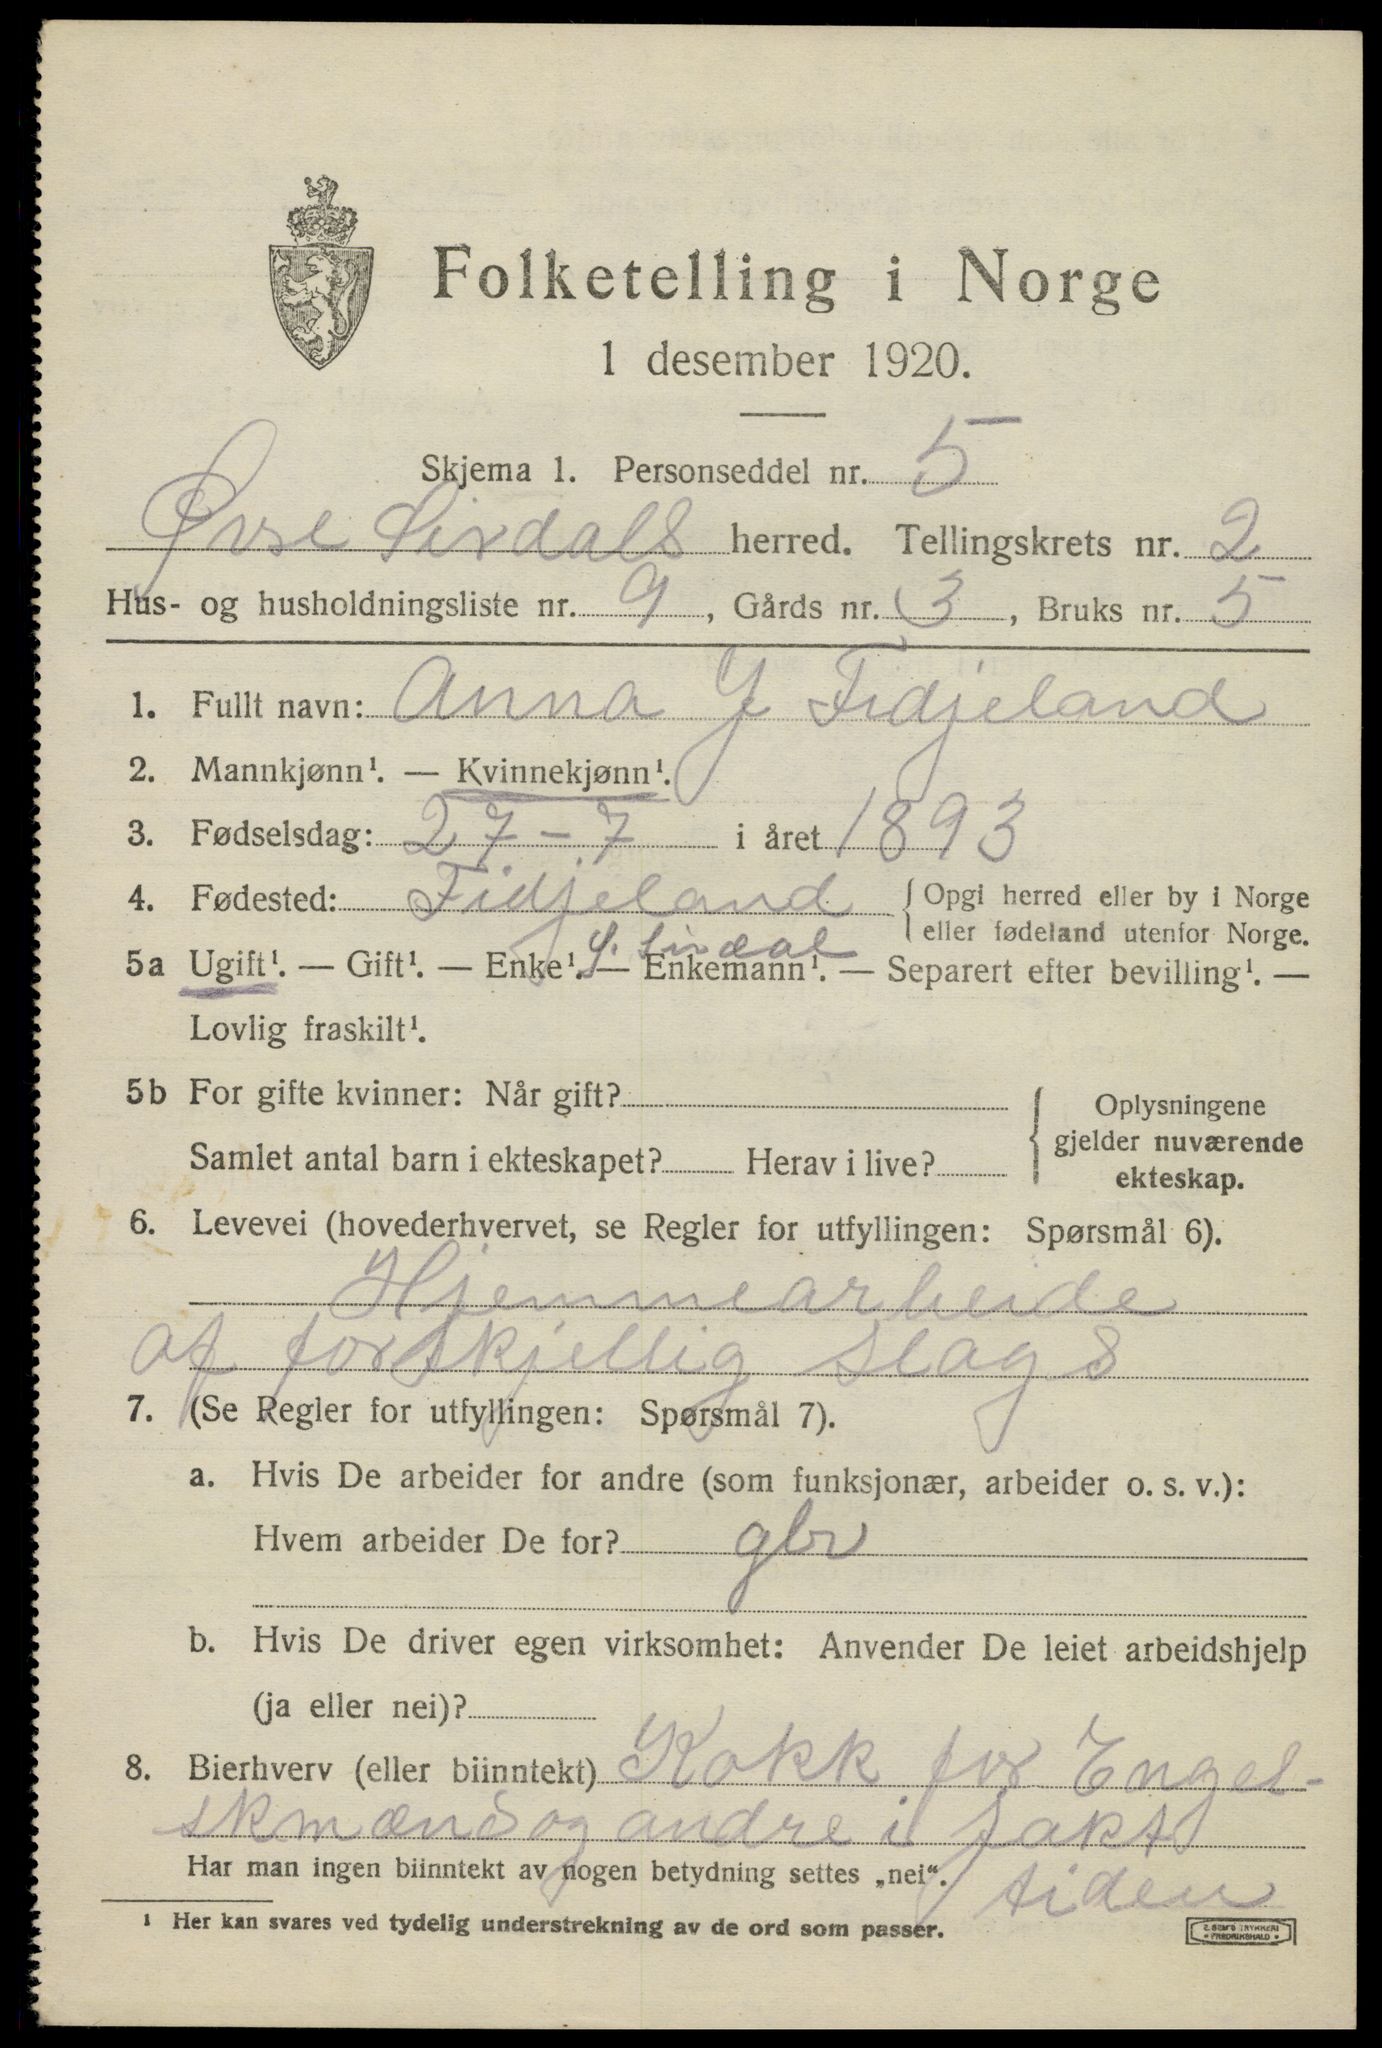 Folketelling i Norge
1 desember 1920.
Skjema 1. Personseddel nr. 5
Øvre Sirdals herred. Tellingskrets nr. 2
Hus- og husholdningsliste nr. 9, Gårds nr. 3, Bruks nr. 5
1. Fullt navn: Anna J Fidjeland
2. Mannkjønn¹. — Kvinnekjønn¹.
3. Fødselsdag: 27-7 i året 1893
4. Fødested: Fidjeland { Opgi herred eller by i Norge
eller fødeland utenfor Norge.
Sirdal
5a Ugift¹. — Gift¹. — Enke¹. — Enkemann¹. — Separert efter bevilling¹. —
Lovlig fraskilt¹.
5b For gifte kvinner: Når gift?
Samlet antal barn i ekteskapet? Herav i live?
{ Oplysningene
gjelder nuværende
ekteskap.
6. Levevei (hovederhvervet, se Regler for utfyllingen: Spørsmål 6).
Hjemmearbeide
af forskjellig slags
7. (Se Regler for utfyllingen: Spørsmål 7).
a. Hvis De arbeider for andre (som funksjonær, arbeider o. s. v.):
Hvem arbeider De for? gbr
b. Hvis De driver egen virksomhet: Anvender De leiet arbeidshjelp
(ja eller nei)?
8. Bierhverv (eller biinntekt) Kokk for Engel-
skmænd og andre i jakt
tiden
Har man ingen biinntekt av nogen betydning settes „nei“.
¹ Her kan svares ved tydelig understrekning av de ord som passer.
E. SEM'S TRYKKERI
FREDRIKSHALD